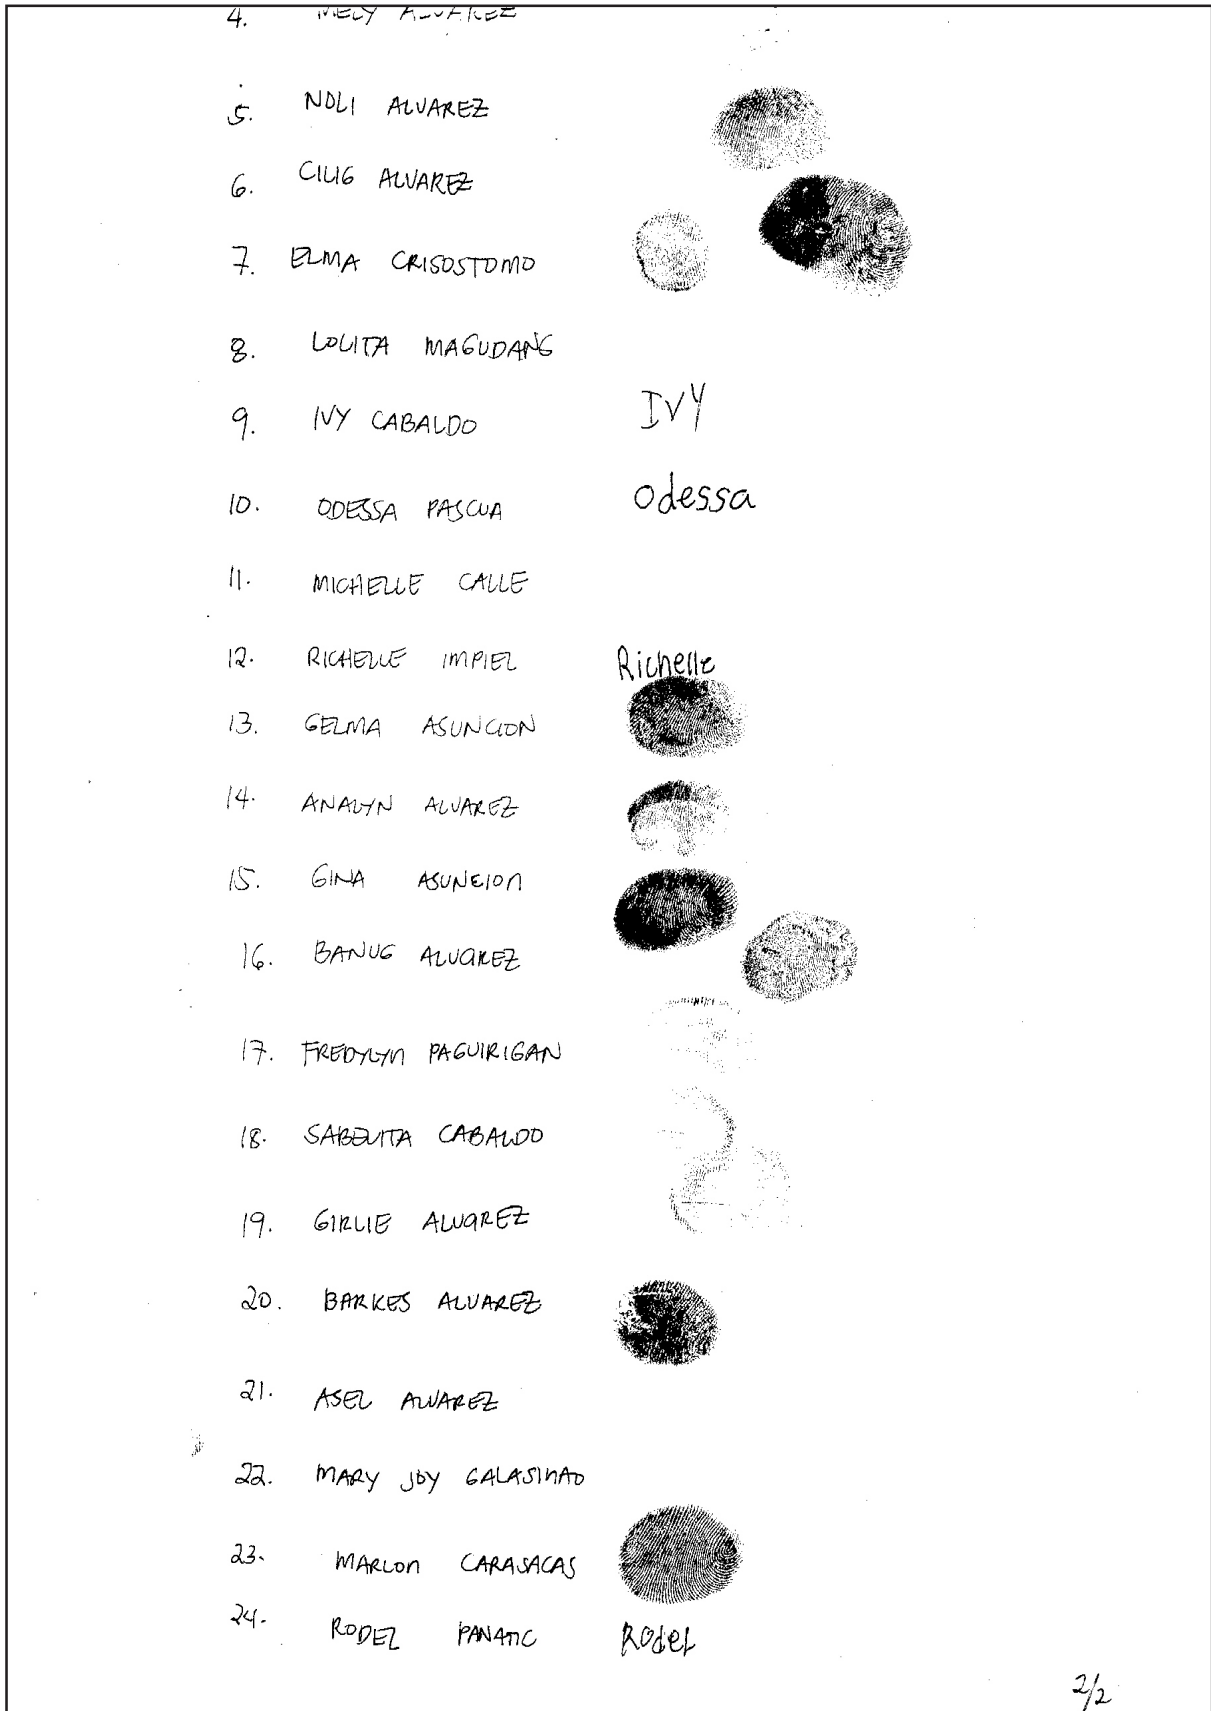 4. MELY ALVAREZ
5. NOLI ALVAREZ
6. CILIG ALVAREZ
7. ELMA CRISOSTOMO
8. LOLITA MAGUDANG
9. IVY CABALDO IVY
10. ODESSA PASCUA Odessa
11. MICHELLE CALLE
12. RICHELLE IMPIEL Richelle
13. GELMA ASUNCION
14. ANALYN ALVAREZ
15. GINA ASUNCION
16. BANUG ALVAREZ
17. FREDYLYN PAGUIRIGAN
18. SABELITA CABALDO
19. GIRLIE ALVAREZ
20. BARKES ALVAREZ
21. ASEL ALVAREZ
22. MARY JOY GALASINAO
23. MARLON CARASACAS
24. RODEL PANATIC Rodel
2/2